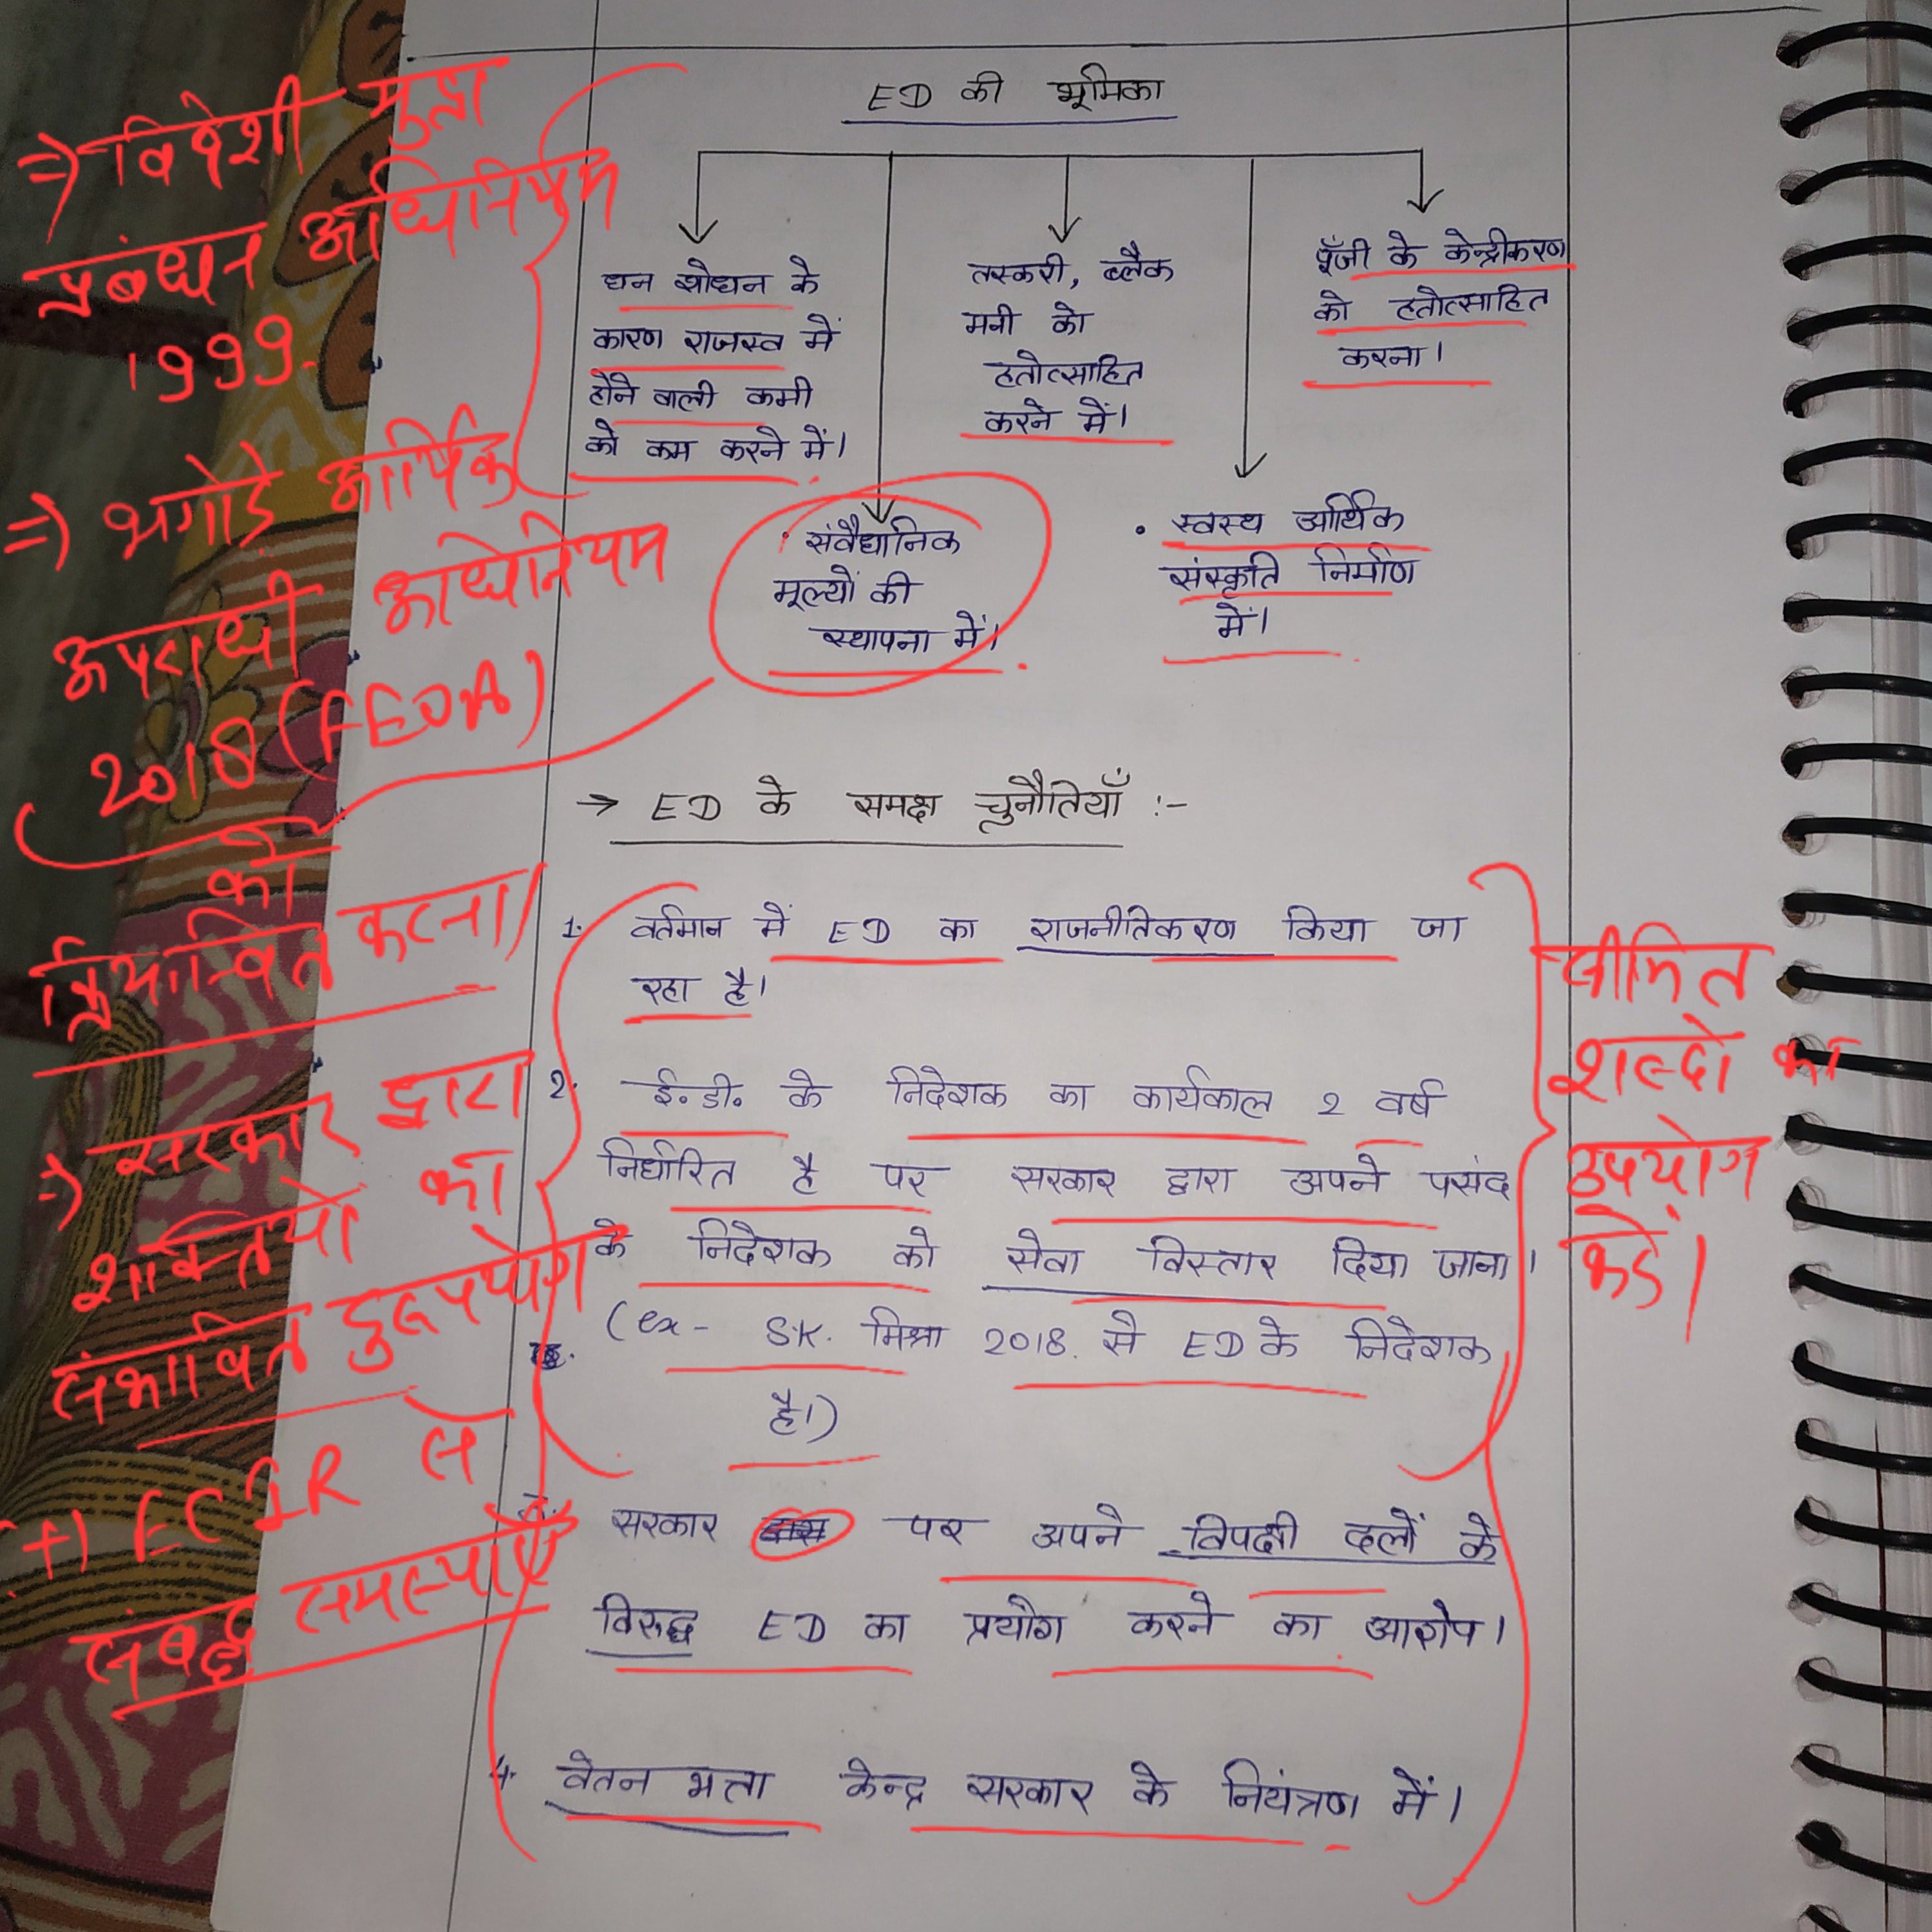 ED की भूमिका
धन शोधन के
कारण राजस्व में
होने वाली कमी
को कम करने में।
संवैधानिक
मूल्यों की
स्थापना में।
तस्करी, ब्लैक
मनी को
हतोत्साहित
करने में।
• स्वस्थ आर्थिक
संस्कृति निर्माण
में।
पूँजी के केन्द्रीकरण
को हतोत्साहित
करना।
→ ED के समक्ष चुनौतियाँ :-
1. वर्तमान में ED का राजनीतिकरण किया जा
रहा है।
2. ई॰डी॰ के निदेशक का कार्यकाल 2 वर्ष
निर्धारित है पर सरकार द्वारा अपने पसंद
के निदेशक को सेवा विस्तार दिया जाना।
(ex- S.K. मिश्रा 2018. से ED के निदेशक
है।)
सरकार पर अपने विपक्षी दलों के
विरुद्ध ED का प्रयोग करने का आरोप।
4. वेतन भत्ता केन्द्र सरकार के नियंत्रण में।
=) विदेशी मुद्रा
प्रबंधन अधिनियम
1999.
=) भगोड़े आर्थिक
अपराधी अधिनियम
2018 (FEOA)
को
क्रियान्वित करना।
=) सरकार द्वारा
शक्तियों का
संभावित दुरूपयोग
+) ECIR से
संबद्ध समस्याएँ
सीमित
शब्दों का
उपयोग
करें।